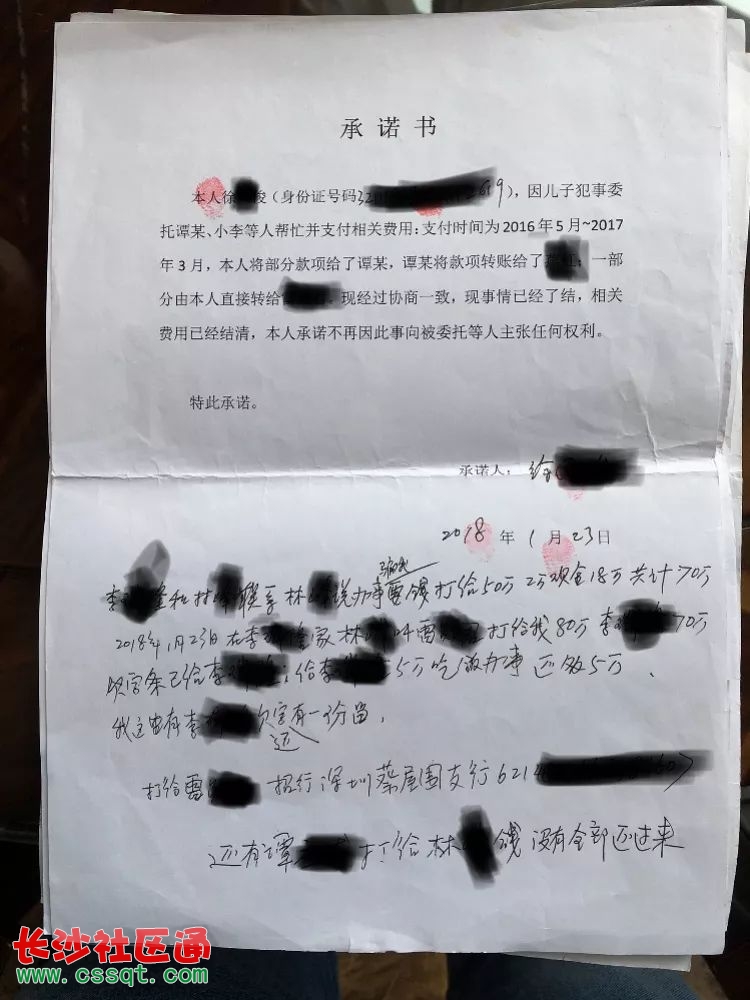 承诺书
本人徐 俊（身份证号码32 2619），因儿子犯事委
托谭某、小李等人帮忙并支付相关费用：支付时间为2016年5月~2017
年3月，本人将部分款项给了谭某，谭某将款项转账给了 ；一部
分由本人直接转给 现经过协商一致，现事情已经了结，相关
费用已经结清，本人承诺不再因此事向被委托等人主张任何权利。
特此承诺。
承诺人：徐
2018年1月23日
李 和林 联系林 说办事 雷 钱打给50万 2万 现金18万共计70万
2018年1月23日在李 家林 叫雷 打给我80万李 70万
欠字条已给李 给李 5万吃 办事还欠5万、
我这里有李 欠字有一份留，
还
打给雷 招行深圳蔡屋围支行621
还有谭 打给林 钱没有全部还过来
长沙社区通
www.cssqt.com